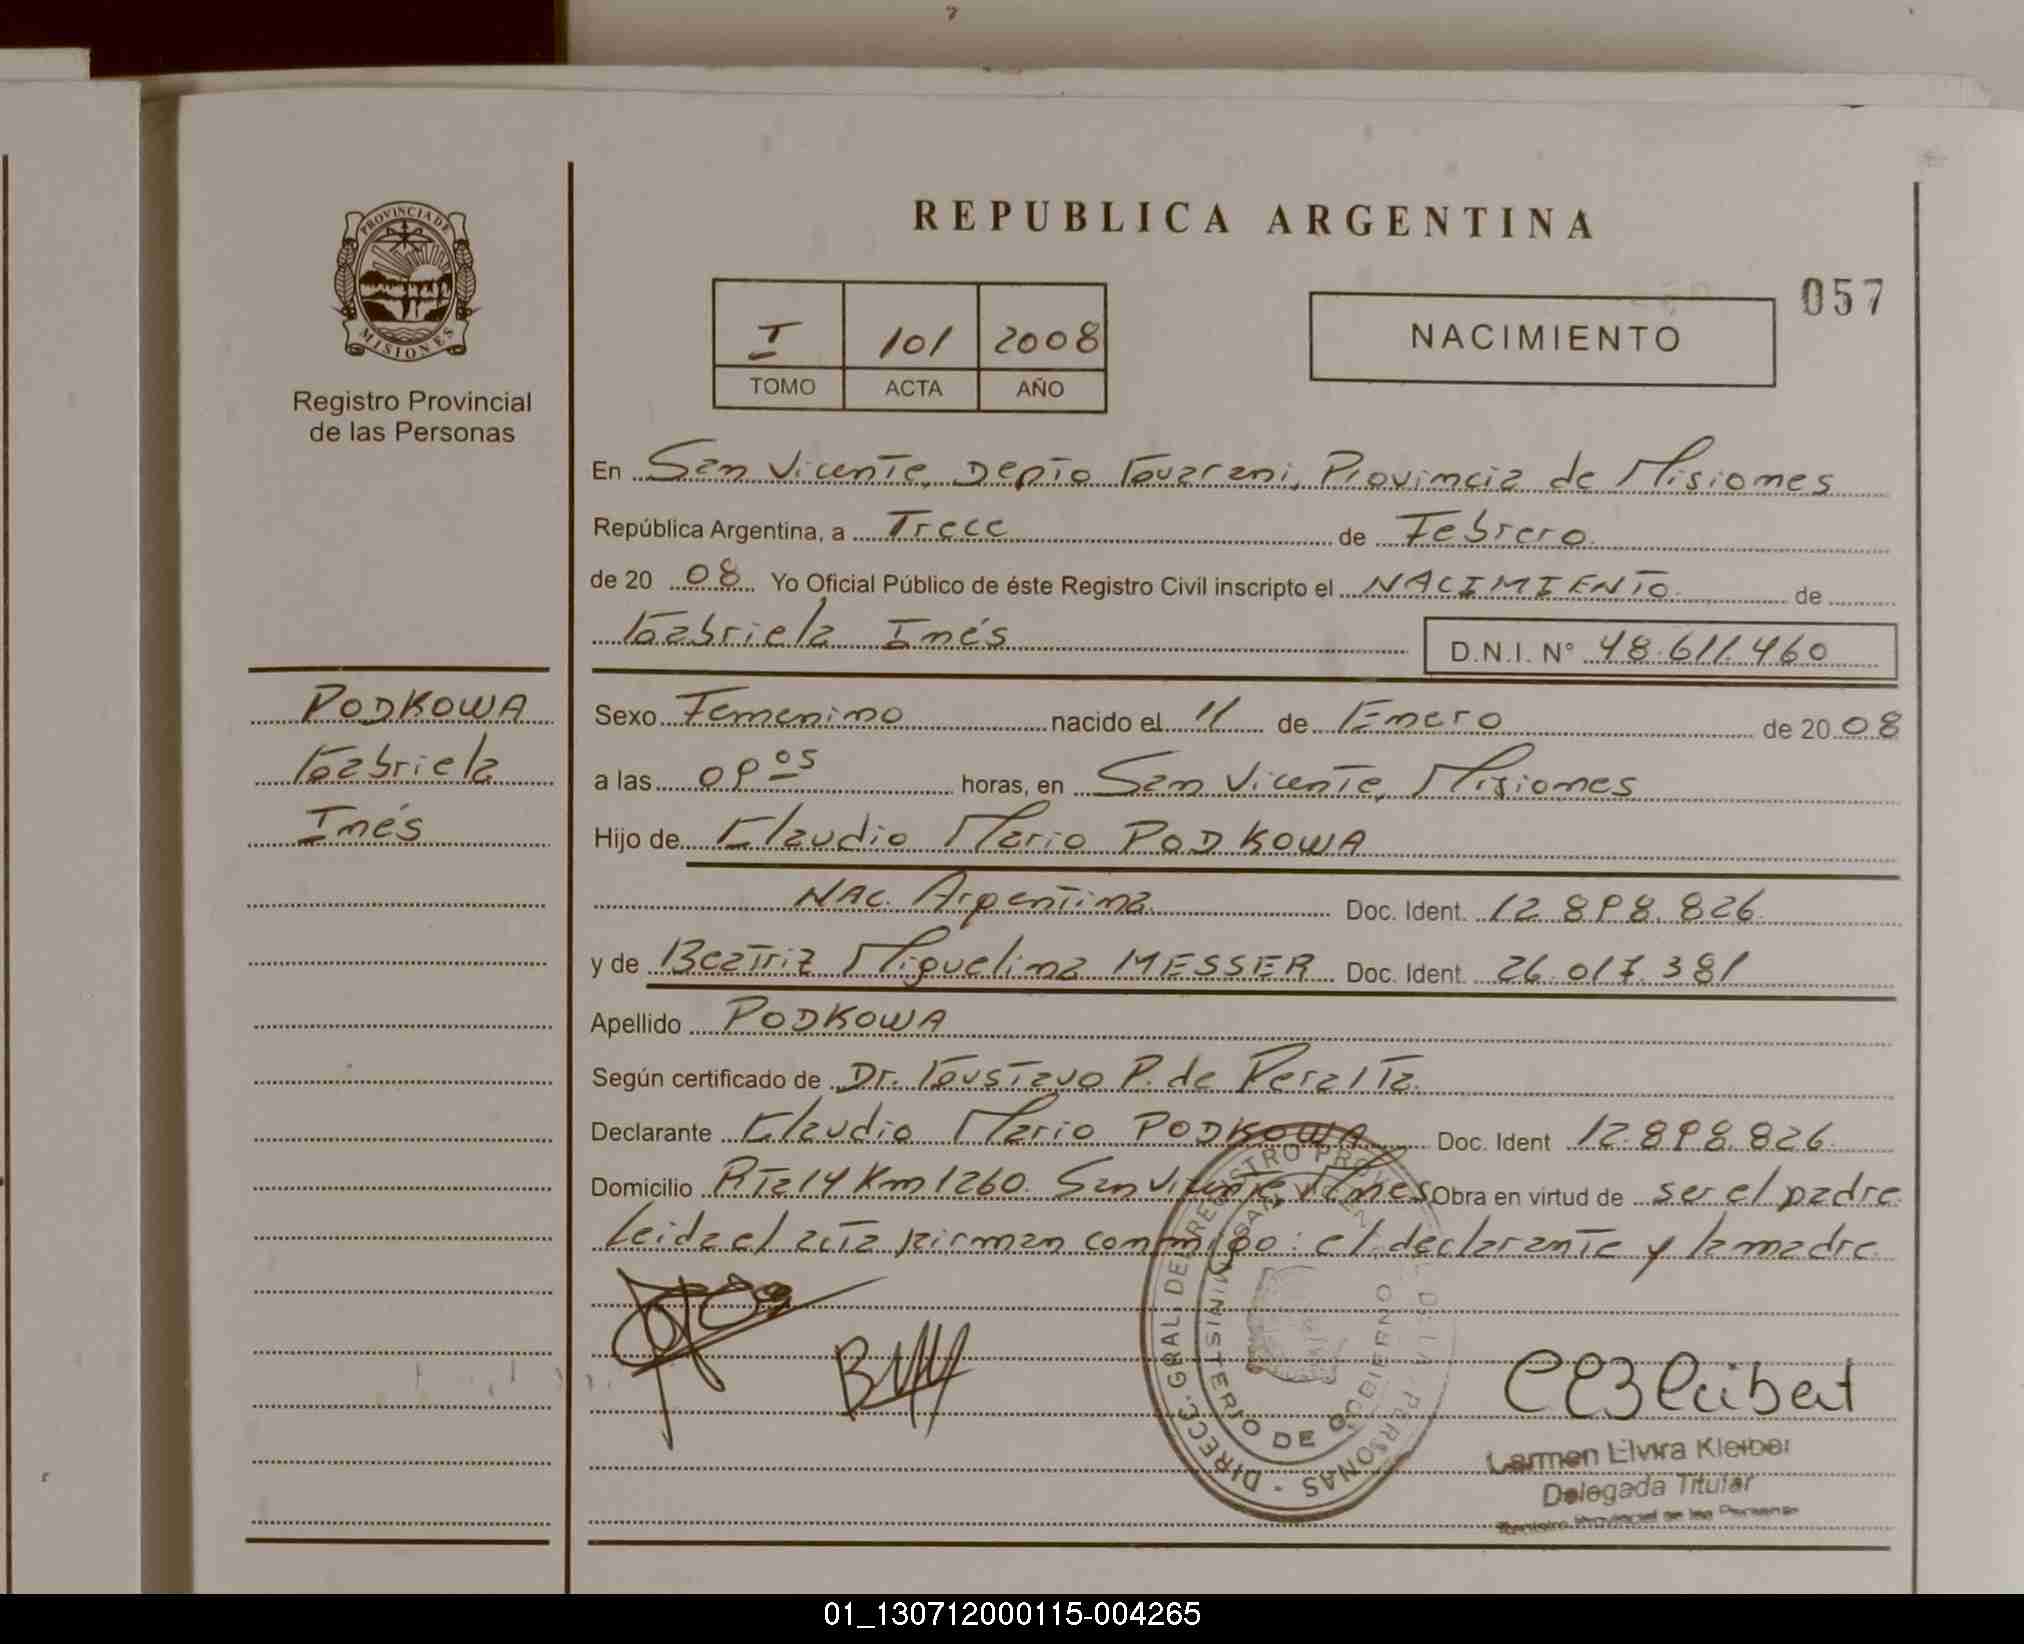 REPUBLICA ARGENTINA
057
PROVINCIA DE
MISIONES
Registro Provincial
de las Personas
I 101 2008
TOMO ACTA AÑO
NACIMIENTO
En San Vicente, Depto Guarani, Provincia de Misiones
República Argentina, a Trece de Febrero
de 20 08 Yo Oficial Público de éste Registro Civil inscripto el NACIMIENTO de
Gabriela Inés D.N.I. N° 48.611.460
PODKOWA
Gabriela
Inés
Sexo Femenino nacido el 11 de Enero de 20 08
a las 09 05 horas, en San Vicente, Misiones
Hijo de Claudio Mario PODKOWA
Nac. Argentina Doc. Ident. 12.898.826
y de Beatriz Miguelina MESSER Doc. Ident. 26.017.381
Apellido PODKOWA
Según certificado de Dr. Gustavo P. de Peralta
Declarante Claudio Mario PODKOWA Doc. Ident 12.898.826
Domicilio Rta 14 Km 1260. San Vicente, Mnes Obra en virtud de ser el padre
Leida el acta firman conmigo: el declarante y la madre
DIRECC. GRAL. DE REGISTRO PROV. DE LAS PERSONAS
MINISTERIO DE GOBIERNO
Carmen Elvira Kleiber
Delegada Titular
Registro Provincial de las Personas
01_130712000115-004265